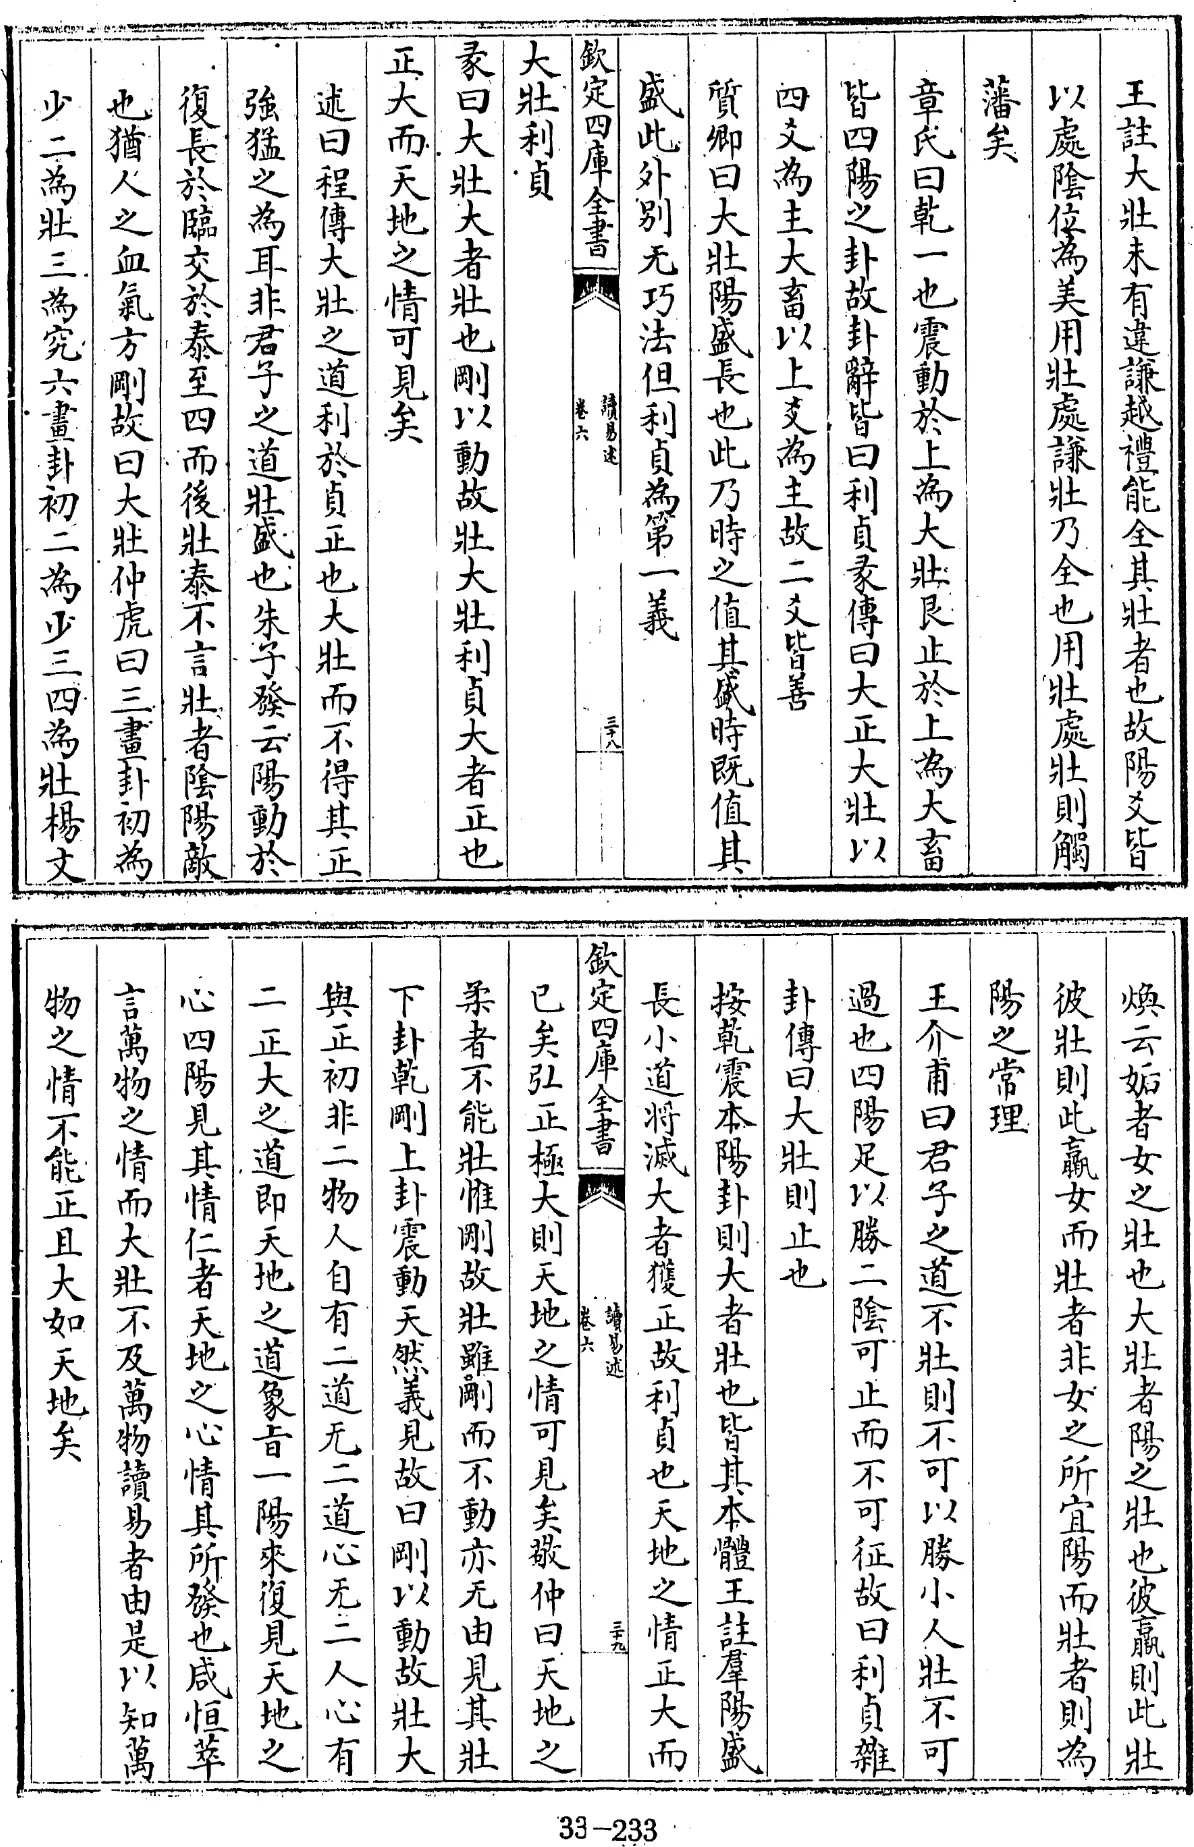 王註大壯未有違謙越禮能全其壯者也故陽爻皆
以處陰位為美用壯處謙壯乃全也用壯處壯則觸
藩矣
章氏曰乾一也震動於上為大壯艮止於上為大畜
皆四陽之卦故卦辭皆曰利貞彖傳曰大正大壯以
四爻為主大畜以上爻為主故二爻皆善
質卿曰大壯陽盛長也此乃時之值其盛時既值其
盛此外別无巧法但利貞為第一義
欽定四庫全書
讀易述
卷六
三十八
大壯利貞
彖曰大壯大者壯也剛以動故壯大壯利貞大者正也
正大而天地之情可見矣
述曰程傳大壯之道利於貞正也大壯而不得其正
強猛之為耳非君子之道壯盛也朱子發云陽動於
復長於臨交於泰至四而後壯泰不言壯者陰陽敵
也猶人之血氣方剛故曰大壯仲虎曰三畫卦初為
少二為壯三為究六畫卦初二為少三四為壯楊文
煥云姤者女之壯也大壯者陽之壯也彼羸則此壯
彼壯則此羸女而壯者非女之所宜陽而壯者則為
陽之常理
王介甫曰君子之道不壯則不可以勝小人壯不可
過也四陽足以勝二陰可止而不可征故曰利貞雜
卦傳曰大壯則止也
按乾震本陽卦則大者壯也皆其本體王註羣陽盛
長小道將滅大者獲正故利貞也天地之情正大而
欽定四庫全書
讀易述
卷六
三十九
已矣弘正極大則天地之情可見矣敬仲曰天地之
柔者不能壯惟剛故壯雖剛而不動亦无由見其壯
下卦乾剛上卦震動天然義見故曰剛以動故壯大
與正初非二物人自有二道无二道心无二人心有
二正大之道即天地之道象旨一陽來復見天地之
心四陽見其情仁者天地之心情其所發也咸恒萃
言萬物之情而大壯不及萬物讀易者由是以知萬
物之情不能正且大如天地矣
33-233